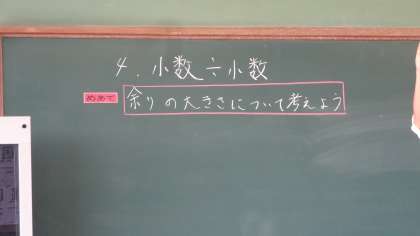 4. 小数÷小数
めあて 余りの大きさについて考えよう